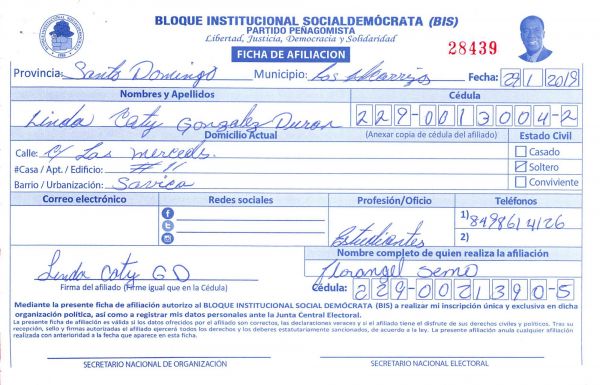 BLOQUE INSTITUCIONAL SOCIALDEMÓCRATA (BIS)
PARTIDO PEÑAGOMISTA
Libertad, Justicia, Democracia y Solidaridad
FICHA DE AFILIACION
28439
Provincia: Santo Domingo Municipio: Los Alcarrizos Fecha: 29 1 2019
Nombres y Apellidos Cédula
Linda Caty Gonzalez Duran 229-0013004-2
Domicilio Actual (Anexar copia de cédula del afiliado) Estado Civil
Calle: C/ Las merceds. Casado
#Casa / Apt. / Edificio: # 11 Soltero
Barrio / Urbanización: Savica Conviviente
Correo electrónico Redes sociales Profesión/Oficio Teléfonos
Estudiantes
1) 8498614126
2)
Nombre completo de quien realiza la afiliación
Linda Caty G D Florangel
Firma del afiliado (Firme igual que en la Cédula) Cédula: 229-0021390-5
Mediante la presente ficha de afiliación autorizo al BLOQUE INSTITUCIONAL SOCIAL DEMÓCRATA (BIS) a realizar mi inscripción única y exclusiva en dicha
organización política, así como a registrar mis datos personales ante la Junta Central Electoral.
La presente ficha de afiliación es válida si los datos ofrecidos por el afiliado son correctos, las declaraciones veraces y si el afiliado tiene el disfrute de sus derechos civiles y políticos. Tras su
recepción, sello y firmas autorizadas el afiliado ejercerá todos los derechos y los deberes estatutariamente sancionados, de acuerdo a la ley. La presente afiliación anula cualquier afiliación
realizada con anterioridad a la fecha que aparece en esta ficha.
SECRETARIO NACIONAL DE ORGANIZACIÓN SECRETARIO NACIONAL ELECTORAL